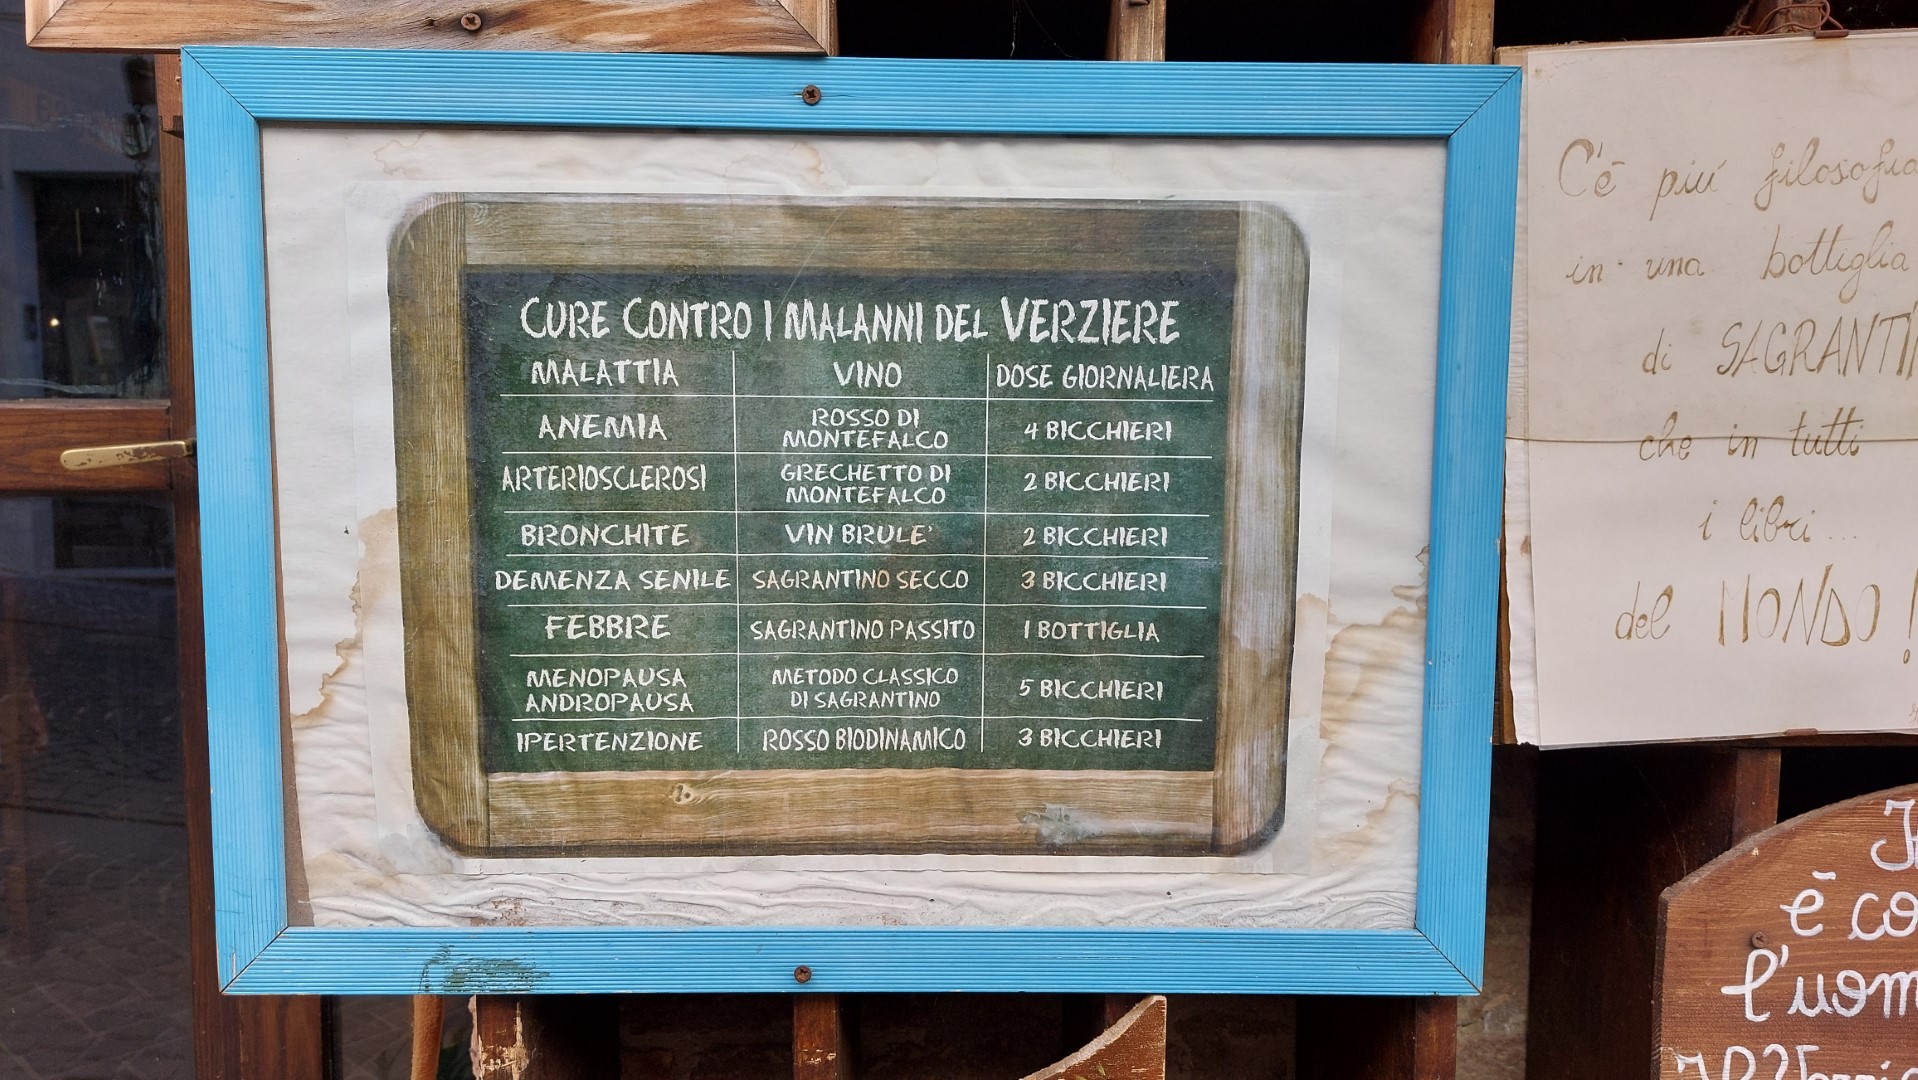 CURE CONTRO I MALANNI DEL VERZIERE
MALATTIA VINO DOSE GIORNALIERA
ANEMIA ROSSO DI MONTEFALCO 4 BICCHIERI
ARTERIOSCLEROSI GRECHETTO DI MONTEFALCO 2 BICCHIERI
BRONCHITE VIN BRULE' 2 BICCHIERI
DEMENZA SENILE SAGRANTINO SECCO 3 BICCHIERI
FEBBRE SAGRANTINO PASSITO 1 BOTTIGLIA
MENOPAUSA ANDROPAUSA METODO CLASSICO DI SAGRANTINO 5 BICCHIERI
IPERTENZIONE ROSSO BIODINAMICO 3 BICCHIERI
C'è piú filosofia
in una bottiglia
di SAGRANTI
che in tutti
i libri...
del MONDO!
è co
l'uom